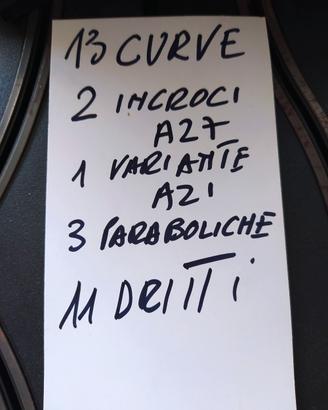 13 CURVE
2 INCROCI
A27
1 VARIANTE
A21
3 PARABOLICHE
11 DRITTI